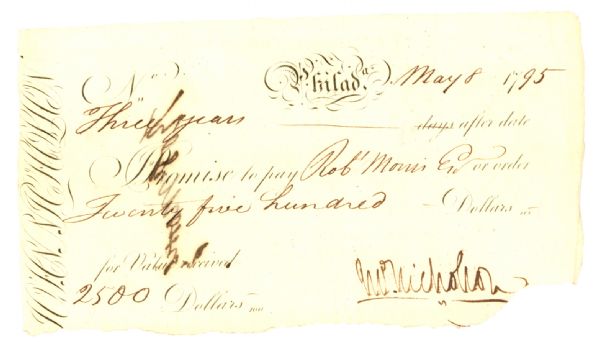 No. Philada. May 8 1795
Three years days after date
I Promise to pay Robt Morris Esqr or order
Twenty five hundred Dollars
for Value received
2500 Dollars
Jno Nicholson